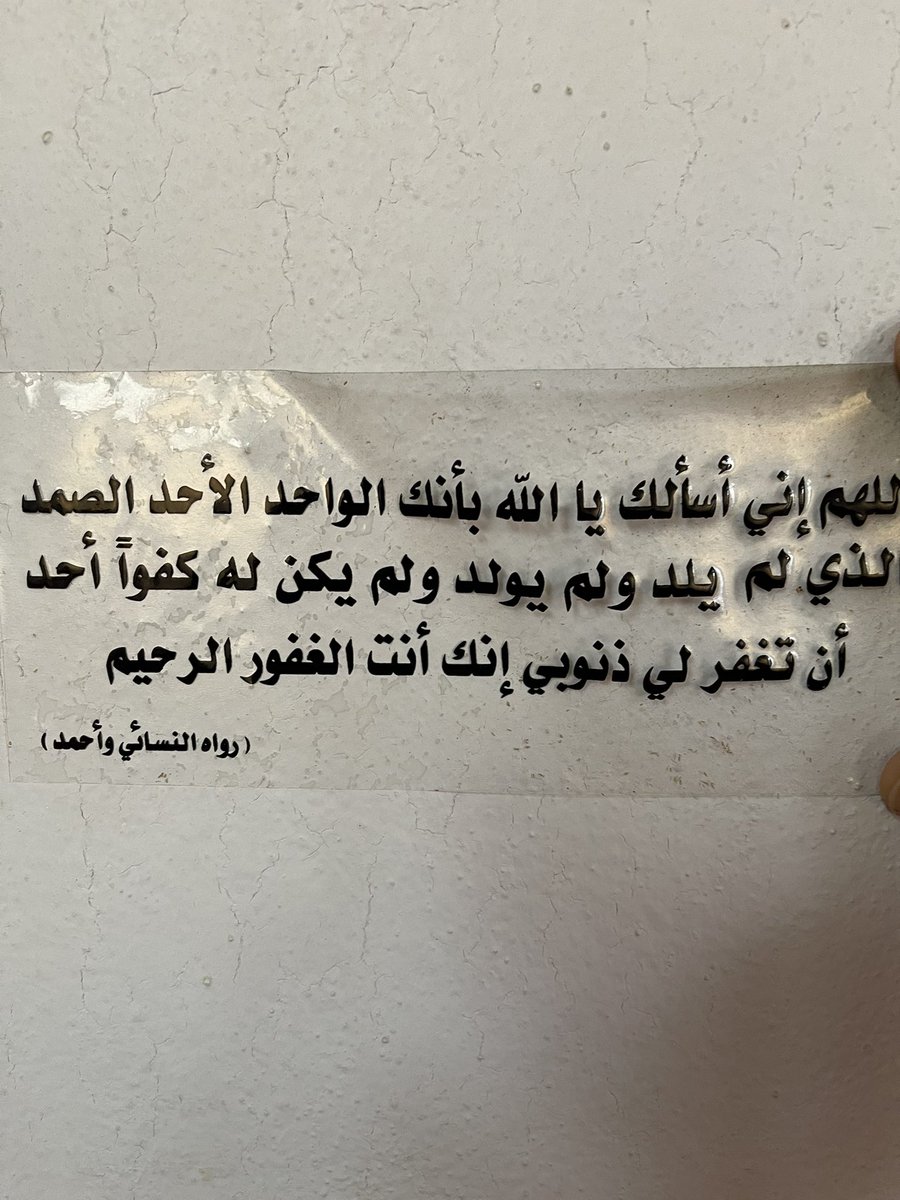 للهم إني أسألك يا الله بأنك الواحد الأحد الصمد
الذي لم يلد ولم يولد ولم يكن له كفواً أحد
أن تغفر لي ذنوبي إنك أنت الغفور الرحيم
(رواه النسائي وأحمد)